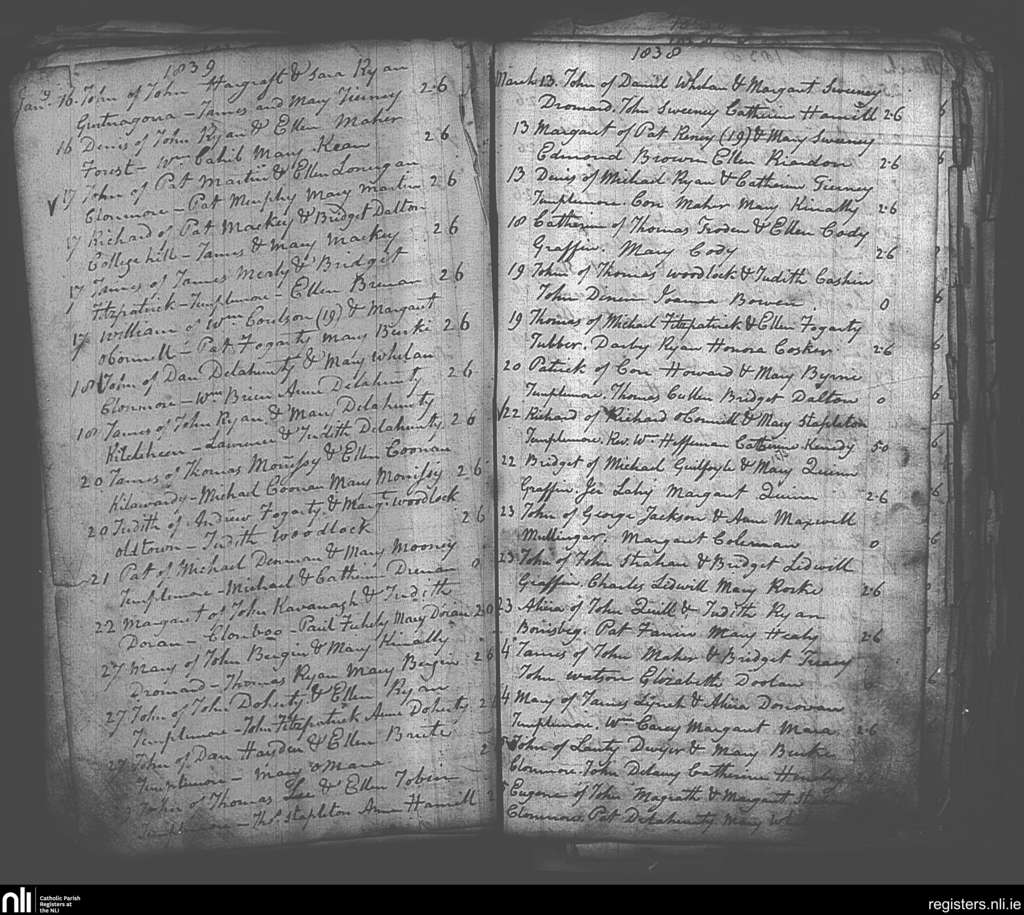 1839
Jany. 16. John of John Hargraft & Sara Ryan
Gurtnagona - James and Mary Tierney 2-6
16 Denis of John Ryan & Ellen Maher
Forest - Wm Cahil Mary Kean 2 6
17 John of Pat Martin & Ellen Lonergan
Clonmore - Pat Murphy Mary Martin 2 6
17 Richard of Pat Mackey & Bridget Dalton
College hill - James & Mary Mackey 2 6
17 James of James Mealy & Bridget
Fitzpatrick - Templemore - Ellen Brenan 2 6
17 William of Wm Coulson (19) & Margaret
OConnell - Pat Fogarty Mary Burke 2 6
18 John of Dan Delahunty & Mary Whelan
Clonmore - Wm Brien Ann Delahunty 2 6
18 James of John Ryan & Mary Delahunty
Kilclcheen - Lawrence & Judith Delahunty 2 6
20 James of Thomas Morrissy & Ellen Coonan
Kilawardy - Michael Coonan Mary Morrissy 2 6
20 Judith of Andrew Fogarty & Margt. Woodlock
Oldtown - Judith Woodlock 2 6
21 Pat of Michael Denmon & Mary Mooney
Templemore - Michael & Catherin Drenan 0
22 Margaret of John Kavanagh & Judith
Doran - Clonboo - Paul Fehely Mary Doran 2 0
27 Mary of John Bergin & Mary Kinally
Dromard - Thomas Ryan Mary Bergin 2 6
27 John of John Doherty & Ellen Ryan
Templemore - John Fitzpatrick Anne Doherty 2
27 John of Dan Hayden & Ellen Brute
Templemore - Mary OMara 2
John of Thomas Lee & Ellen Tobin
Templemore - Thos. Stapleton Ann Hamill 2
1838
March 13. John of Daniel Whelan & Margaret Sweeney
Dromard. John Sweeney Catherin Hamill 2 6
13 Margaret of Pat Keney (19) & Mary Sweeney
Edmond Brown Ellen Riardon 2 6
13 Denis of Michael Ryan & Catherin Tierney
Templemore. Con Maher Mary Kinally 2 6
18 Catherin of Thomas Troden & Ellen Cody
Graffin. Mary Cody 2 6
19 John of Thomas Woodlock & Judith Cashin
John Dinin Joanna Bowen 0
19 Thomas of Michael Fitzpatrick & Ellen Fogarty
Tubber. Darby Ryan Honora Cosker 2 6
20 Patrick of Con Howard & Mary Byrne
Templemore. Thomas Cullen Bridget Dalton 0
22 Richard of Richard OConnell & Mary Stapleton
Templemore. Rev. Wm Heffernan Catherine Kenedy 50
22 Bridget of Michael Guilfoyle & Mary Quinn
Graffin. Jer Lahy Margaret Quinn 2 6
23 John of George Jackson & Anne Maxwell
Mullingar. Margaret Coleman 0
23 John of John Strahan & Bridget Lidwill
Graffin. Charles Lidwill Mary Rorke 2 6
23 Alicia of John Quill & Judith Ryan
Borrisbeg. Pat Fanin Mary Healy 2 6
4 James of John Maher & Bridget Treacy
John Watson Elizabeth Doolan
4 Mary of James Lynch & Alicia Donovan
Templemore. Wm Carey Margaret Mara 2 6
John of Lanty Dwyer & Mary Burke
Clonmore. John Delany Catherine
Eugene of John Magrath & Margaret
Clonmore. Pat Delahunty Mary
nli
Catholic Parish
Registers at
the NLI
registers.nli.ie